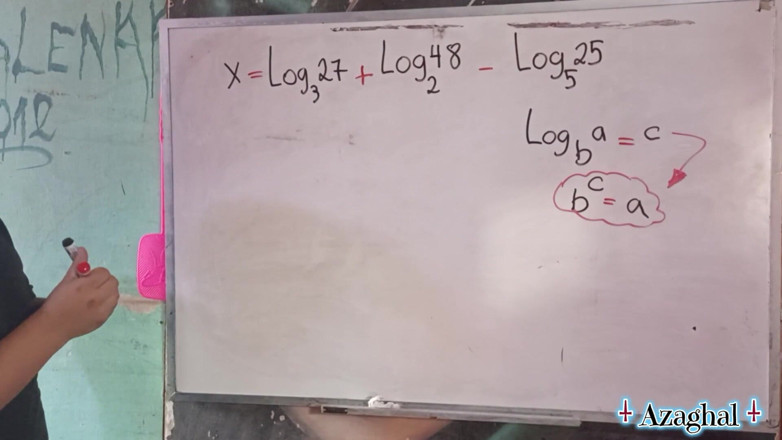 LENKA
912
x = Log₃27 + Log₂48 - Log₅25
Log_b a = c
b^c = a
Azaghal